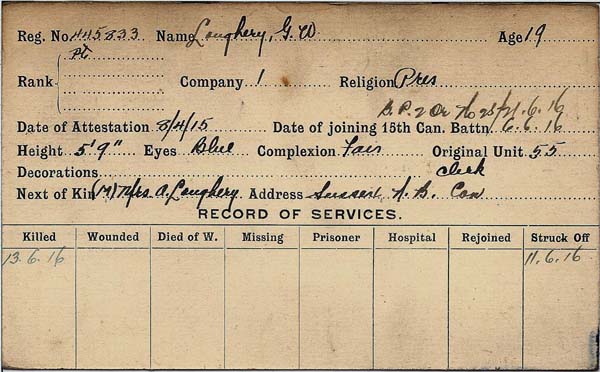 Reg. No. 445833 Name Loughery, G. W Age 19
Rank Pt Company 1 Religion Pres
B.P. 2 Or No 28/21.6.16
Date of Attestation 3/4/15 Date of joining 15th Can. Battn. 6.6.16
Height 5'9" Eyes Blue Complexion Fair Original Unit 55
Decorations clerk
Next of Kin (M) Mrs A. Loughery Address Sussex, N.B. Can
RECORD OF SERVICES.
Killed Wounded Died of W. Missing Prisoner Hospital Rejoined Struck Off
13.6.16 11.6.16